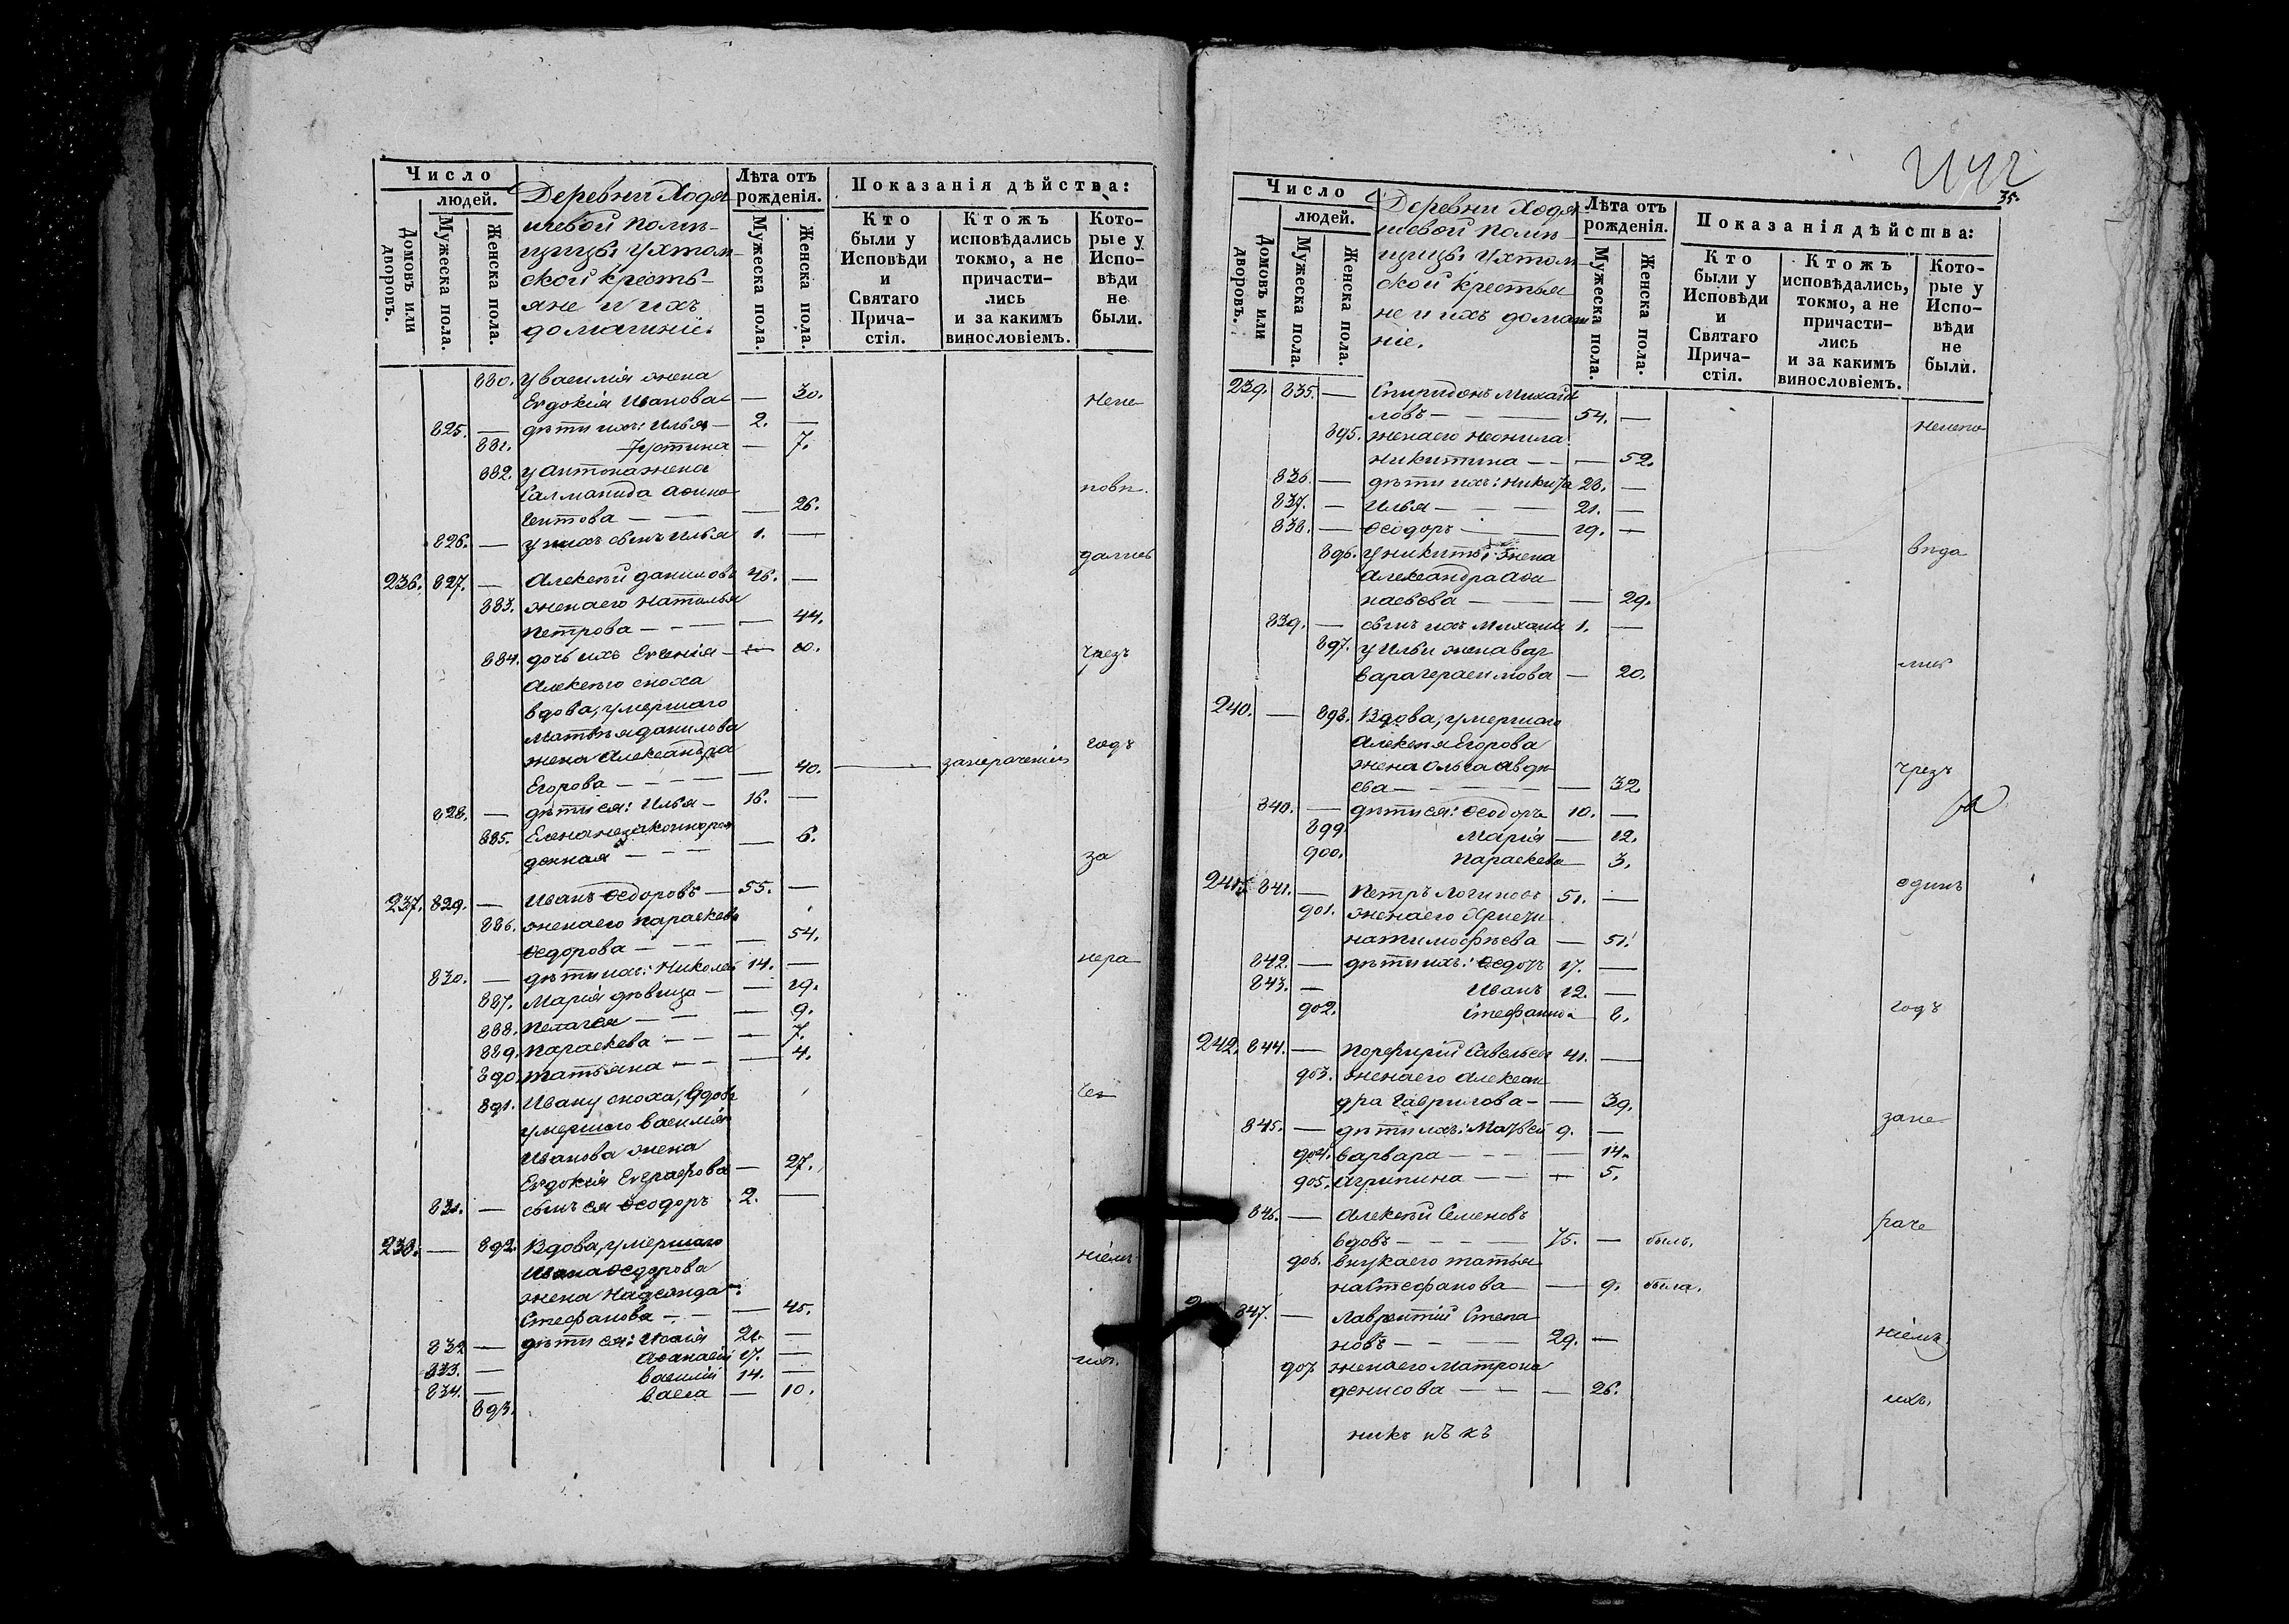 Число
людей.
Домовъ или дворовъ.
Мужеска пола.
Женска пола.
Деревни Ходя-
шевой Помѣ-
щицы Ухтом-
ской кресть-
яне и ихъ
домашніе.
Лѣта отъ
рожденія.
Мужеска пола.
Женска пола.
Показанія дѣйства:
Кто
были у
Исповѣди
и
Святаго
Прича-
стія.
Ктожъ
исповѣдались
токмо, а не
причасти-
лись
и за какимъ
винословіемъ.
Кото-
рые у
Испо-
вѣди
не
были.
880. у василія жена
Евдокія Иванова — 30. Неис-
825. — дѣти ихъ: Илья — 2. —
881. Іустина — 7.
882. у Антона жена
Саломанида
— — — 26. повѣ-
826. — у нихъ сынъ Илья 1. — дались
236. 827. — Алексѣй Даниловъ 46. —
883. жена его Наталья
Петрова — — — 44.
884. дочь ихъ Евгенія — 80. чрезъ
Алексѣю сноха
вдова, умершаго
Матвѣя Данилова
жена Александра годъ
Егорова — — — 40. —
828. — дѣти ея: Илья — 16. —
885. Елена незаконнорож-
денная — — — 6. за
237. 829. — Иванъ Ѳедоровъ — 55. —
886. жена его Параскева
Ѳедорова — — — 54.
830. — дѣти ихъ: Николай 14. — нера-
887. Марія дѣвица — — 19.
888. Пелагея — — — 9.
889. Параскева — — — 7.
890. Татьяна — — — 4.
891. Ивану сноха, вдова
умершаго василія
Иванова жена
Евдокія Евграфова — 27.
831. — сынъ ея Ѳеодоръ 2. —
238. — 892. Вдова, умершаго
Ивана Ѳедорова ніемъ
жена
Стефанова — — — 45.
832 — дѣти ея: 21. —
833. — Аѳанасій 17. —
834. — василій 14. —
893. васса — 10.
35.
Число
людей.
Домовъ или дворовъ.
Мужеска пола.
Женска пола.
Деревни Ходя-
шевой Помѣ-
щицы Ухтом-
ской крестья-
не и ихъ домаш-
ніе.
Лѣта отъ
рожденія.
Мужеска пола.
Женска пола.
Показанія дѣйства:
Кто
были у
Исповѣди
и
Святаго
Прича-
стія.
Ктожъ
исповѣдались,
токмо, а не
причасти-
лись
и за какимъ
винословіемъ.
Кото-
рые у
Испо-
вѣди
не
были.
239. 835. — Спиридонъ Михай-
ловъ — — — 54. — неиспо-
895. жена его Неонила
Никитина — — — 52.
836. — дѣти ихъ: Никита 28. —
837. — Илья — — — 21. —
838. — Ѳеодоръ — 19. —
896. у никиты жена вѣда
Александра Аѳа-
насьева — — — 29.
839. — сынъ ихъ Михаилъ 1. —
897. у Ильи жена вар-
вара Герасимова — 20. лись
240. — 898. Вдова, умершаго
Алексѣя Егорова
жена Ольга Авдѣ-
ева — — — 32. чрезъ
840. — дѣти ея: Ѳеодоръ 10. —
899 Марія — 12.
900. Параскева — 3.
241. 841. — Петръ Логиновъ 51. — одинъ
901. жена его Христи-
на Тимофѣева — 51.
842. — дѣти ихъ: Ѳедоръ 17. —
843. — Иванъ 12. —
902. Стефанида 8. годъ
242. 844. — Порфирій Савельевъ 41. —
903. жена его Алексан-
дра Гаврилова — — 39.
845. — дѣти ихъ: Матвей 9. — зане-
904. варвара — — — 14.
905. Агрипина — — — 5.
846. — Алексѣй Семеновъ
вдовъ — — — 75. — былъ. раче
906. внука его Татья-
на Стефанова — 9. была.
847. — Лаврентій Степа-
новъ — — 29. — ніемъ
907 жена его Матрона
Денисова — — — 26. ихъ.